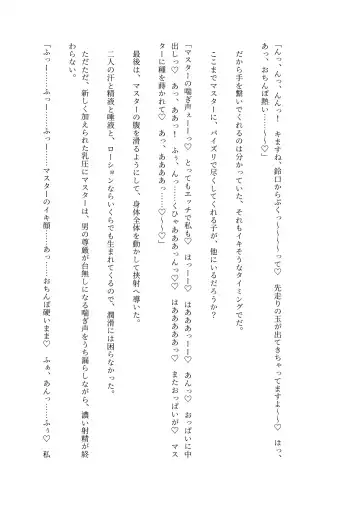 「んっ、んっ、んんっ！　キますね、鈴口からぷくっ～～～～って♡　先走りの玉が出てきちゃってますよ～～♡　はっ、
あっ、おちんぽ熱い……～～♡」
だから手を繋いでくれるのは分かっていた、それもイキそうなタイミングでだ。
ここまでマスターに、パイズリで尽くしてくれる子が、他にいるだろうか？
「マスターの喘ぎ声ぇーーっ♡　とってもエッチで私も♡　はっーー♡　はあああっーー♡　あんっ♡　おっぱいに中
出しっ♡　あっ、ああっ！　ふぅ、んっ……くひゃあああっんっ♡♡　はあああああっ♡　またおっぱいが♡　マス
ターに種を蒔かれて♡　あっ、ああああっ……♡～～♡」
最後は、マスターの腹を滑るようにして、身体全体を動かして挟射へ導いた。
二人の汗と精液と唾液と、ローションならいくらでも生まれてくるので、潤滑には困らなかった。
ただただ、新しく加えられた乳圧にマスターは、男の尊厳が台無しになる喘ぎ声をうち漏らしながら、濃い射精が終
わらない。
「ふっー！……ふーー……ふっー！……マスターのイキ顔……あっ……おちんぽ硬いまま♡　ふぁ、あんっ……ふぅ♡　私